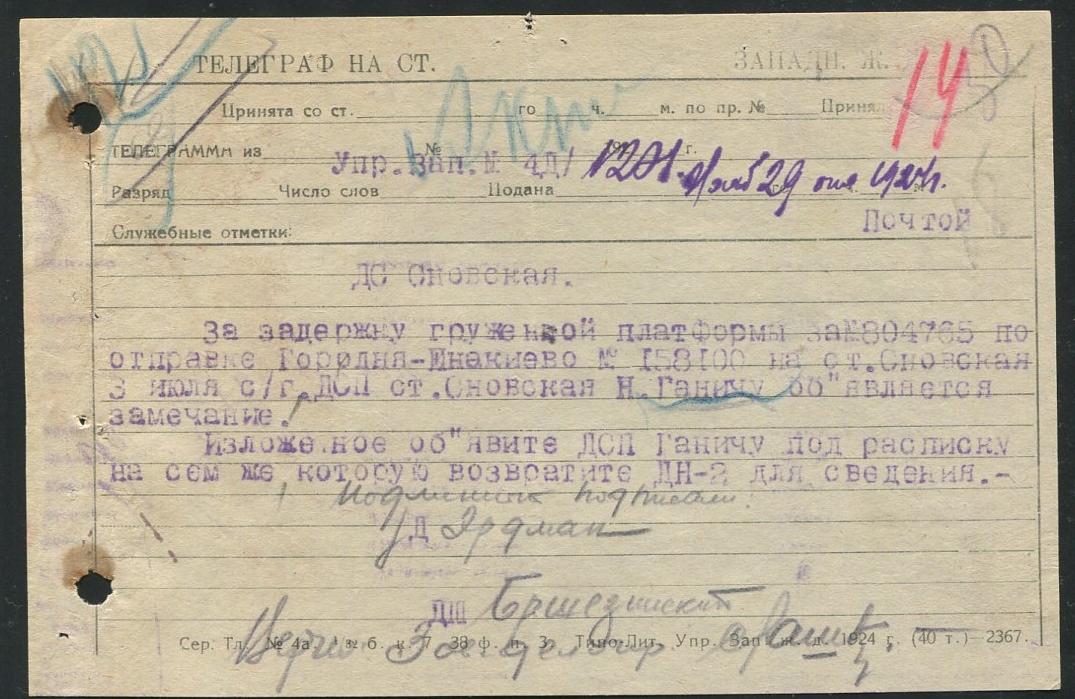 ТЕЛЕГРАФ НА СТ. ЗАПАДН. Ж. 14
Принята со ст. го ч. м. по пр. № Принял
ТЕЛЕГРАММА из № г.
Упр.Зап.№ 4Д/ 1201. 29 1924г.
Разряд Число слов Подана
Почтой
Служебные отметки:
ДС Сновская.
За задержку груженной платформы за№804765 по
отправке Городня-Енакиево № 158100 на ст.Сновская
3 июля с/г.ДСП ст.Сновская Н.Ганичу об"является
замечание.
Изложенное об"явите ДСП Ганичу под расписку
на сем же которую возвратите ДН-2 для сведения.-
Подлинник подписали:
Д Эрдман
ДН
Сер. Тл. № 4а Изб. к. 7. 38 ф. п. 3. Типо-Лит. Упр. Зап. ж. д. 1924 г. (40 т.)—2367.
Верно